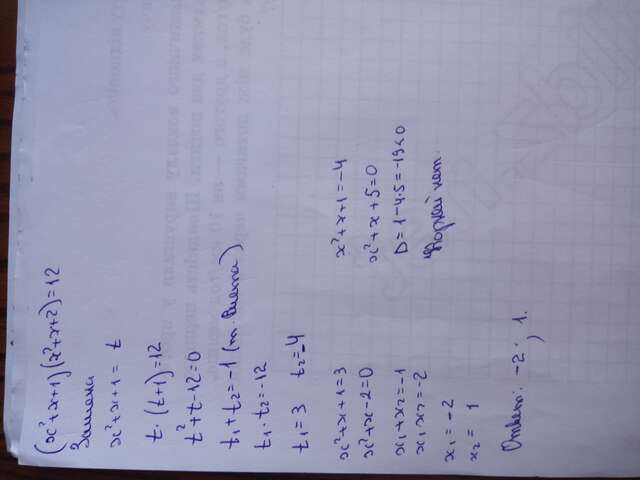 (x²+x+1)(x²+x+2)=12
Замена
x²+x+1 = t
t·(t+1)=12
t²+t-12=0
t₁+t₂=-1 (т. Виета)
t₁·t₂=-12
t₁=3 t₂=-4
x²+x+1=3
x²+x-2=0
x₁+x₂=-1
x₁·x₂=-2
x₁=-2
x₂=1
x²+x+1=-4
x²+x+5=0
D=1-4·5=-19<0
Корней нет.
Ответ: -2; 1.